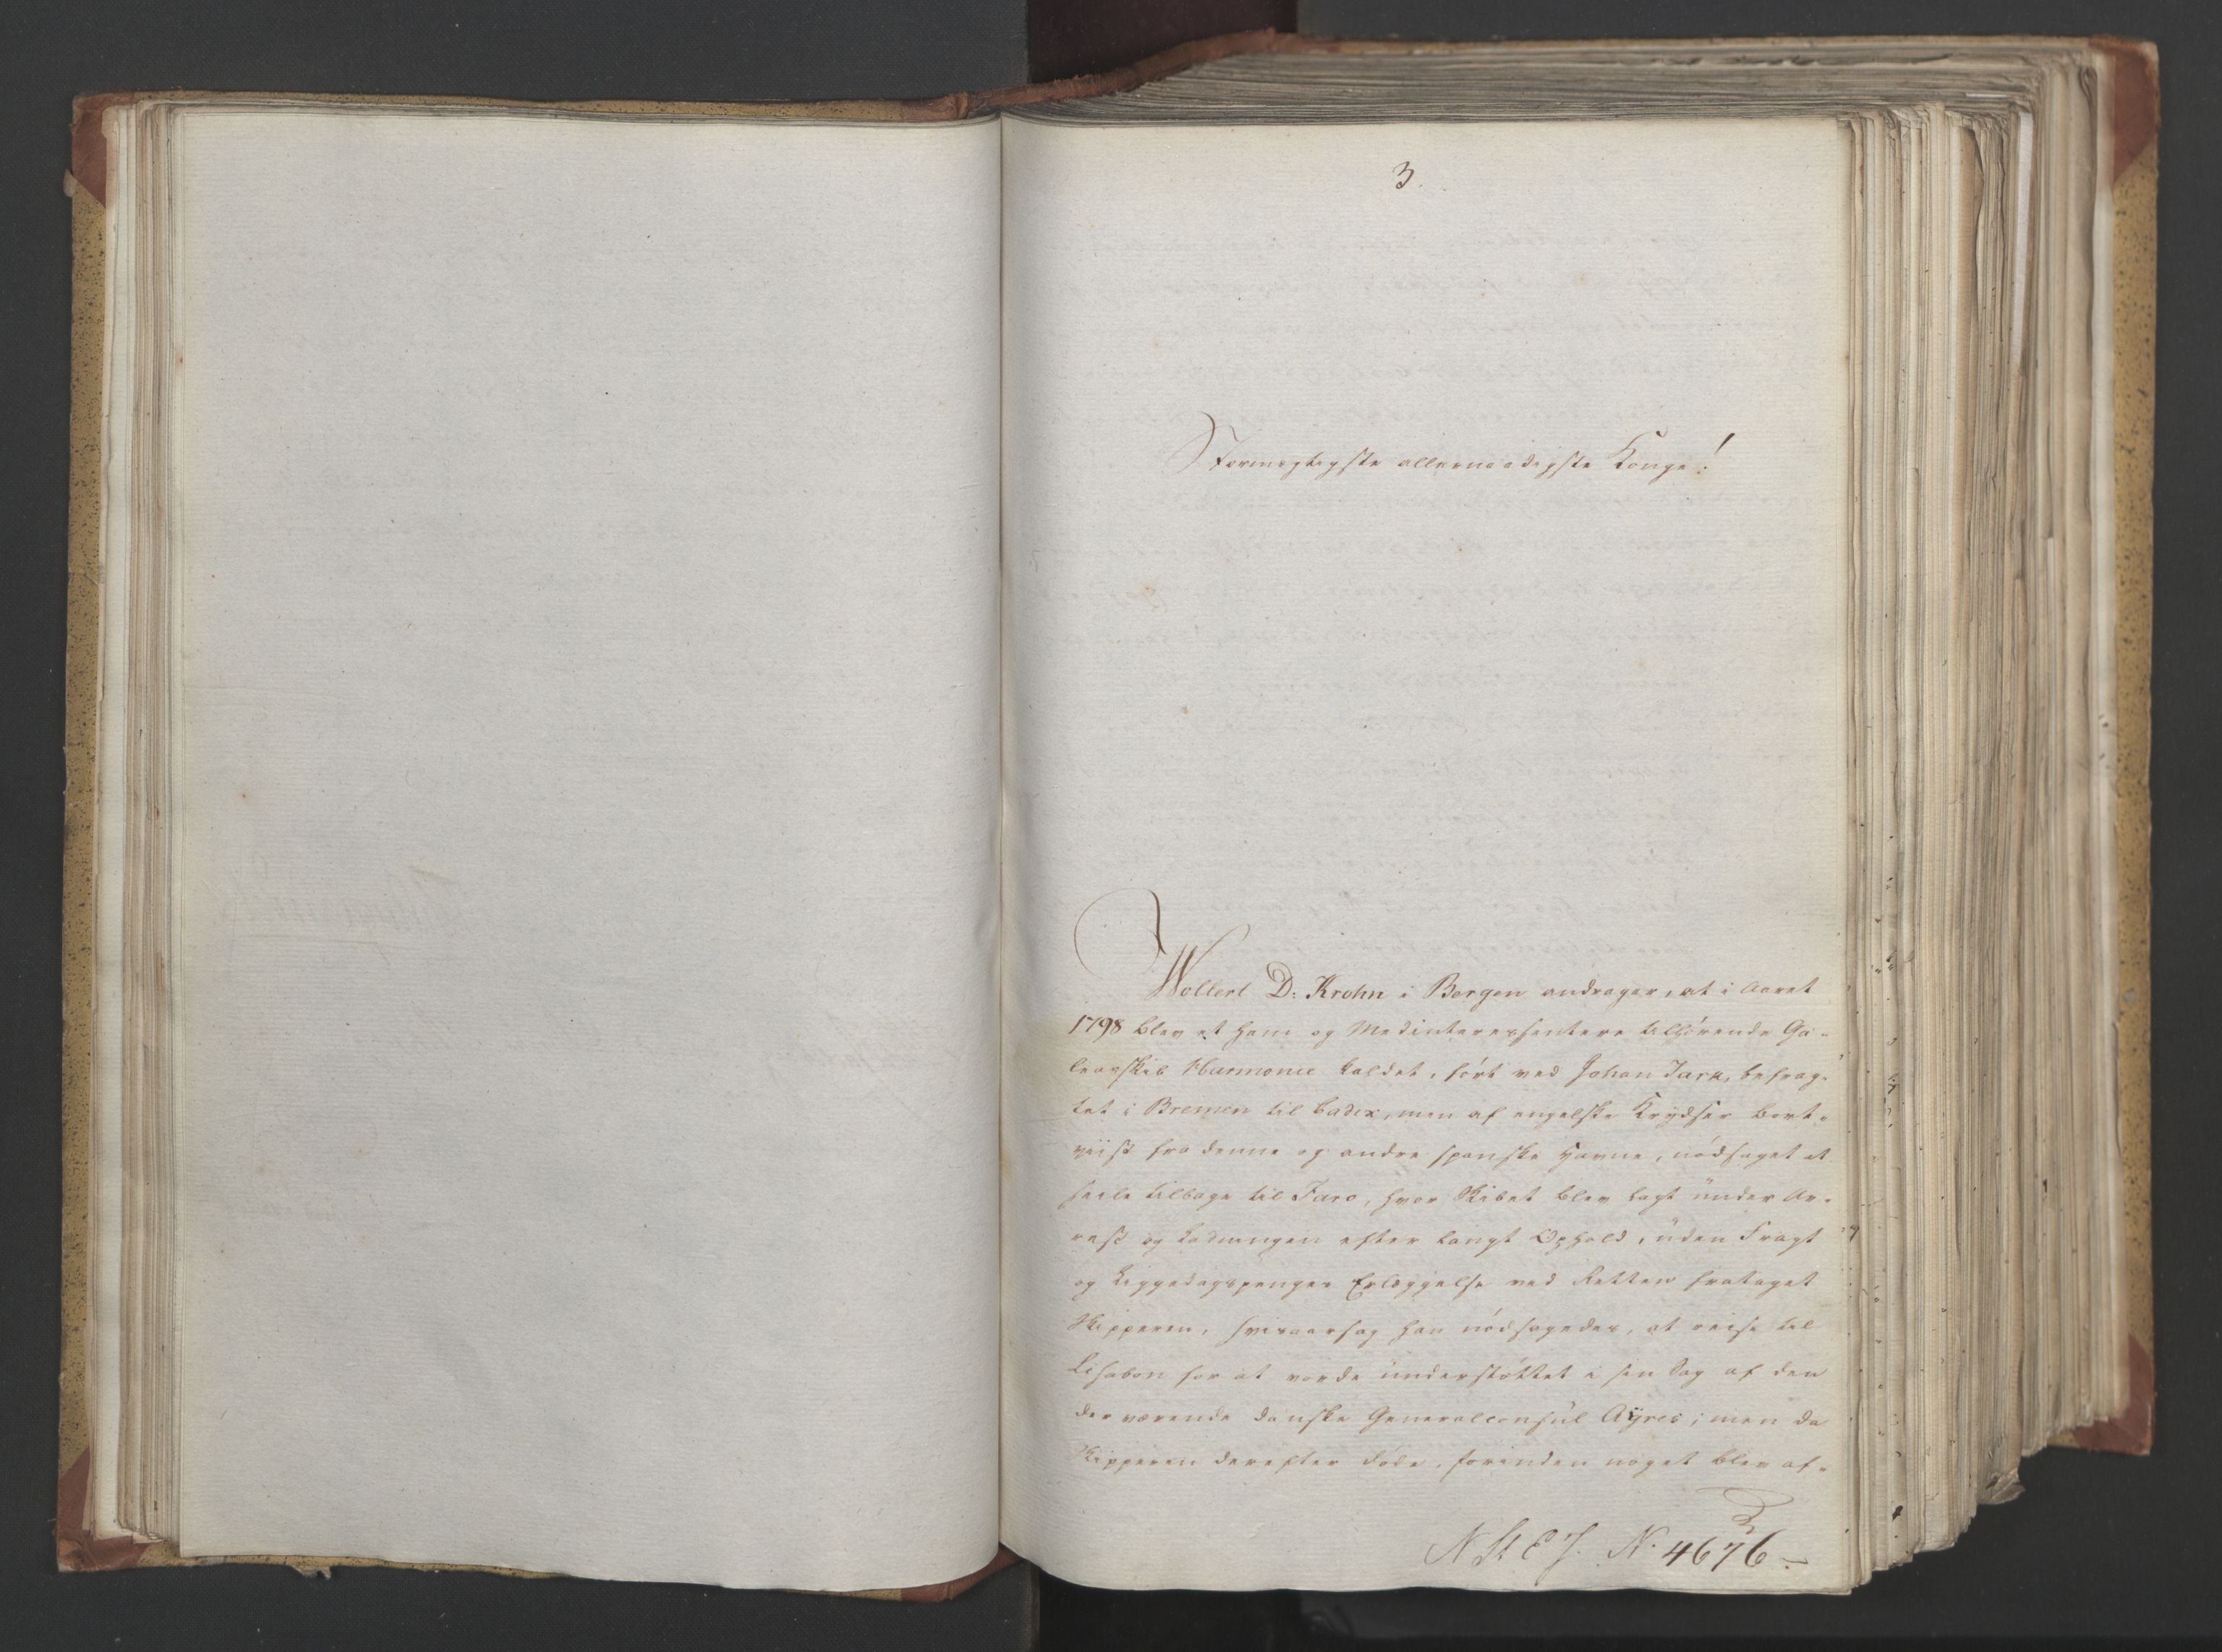 3.
Stormegtigste allernaadigste Konge!
Wollert D: Krohn i Bergen andrager, at i Aaret
1798 blev et ham og Medinteressentere tilhörende Ga-
leasskib Harmonie kaldet, fört ved Johan Jark, befrag-
tet i Bremen til Cadix, men af engelske Krydser bort-
viist fra denne og andre spanske Havne, nödsaget at
seile tilbage til Faro, hvor Skibet blev lagt under Ar-
rest og Ladningen efter langt Ophold, uden Fragt
og Liggedagspenges Erlæggelse ved Retten frataget
Skipperen, hvisaarsag han nödsagedes, at reise til
Lisabon for at vorde understöttet i sin Sag af den
derværende danske Generalconsul Ayres; men da
Skipperen derefter döde, forinden noget blev af-
N St E J. N. 4676